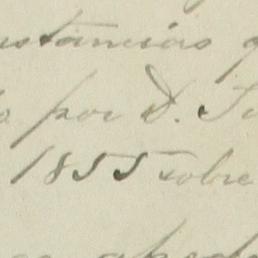 nstancias q
o por D. Ju
1855 sobre